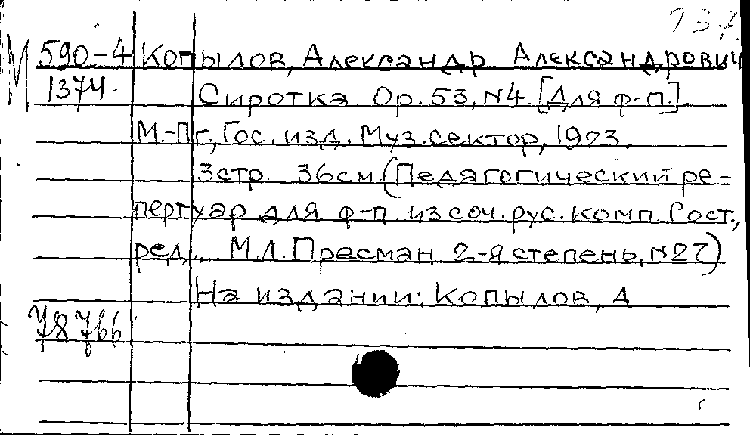 737.
М 590-4 Копылов, Александр Александрович
1374. Сиротка Ор. 53, N4. [Для ф-п.]
М.-Пг, Гос. изд. Муз. сектор, 1923.
3стр. 36см (Педагогический ре-
пертуар для ф-п из соч. рус. комп. Сост.,
ред. М.Л. Пресман 2-я степень, N27)
На издании: Копылов, А
78766